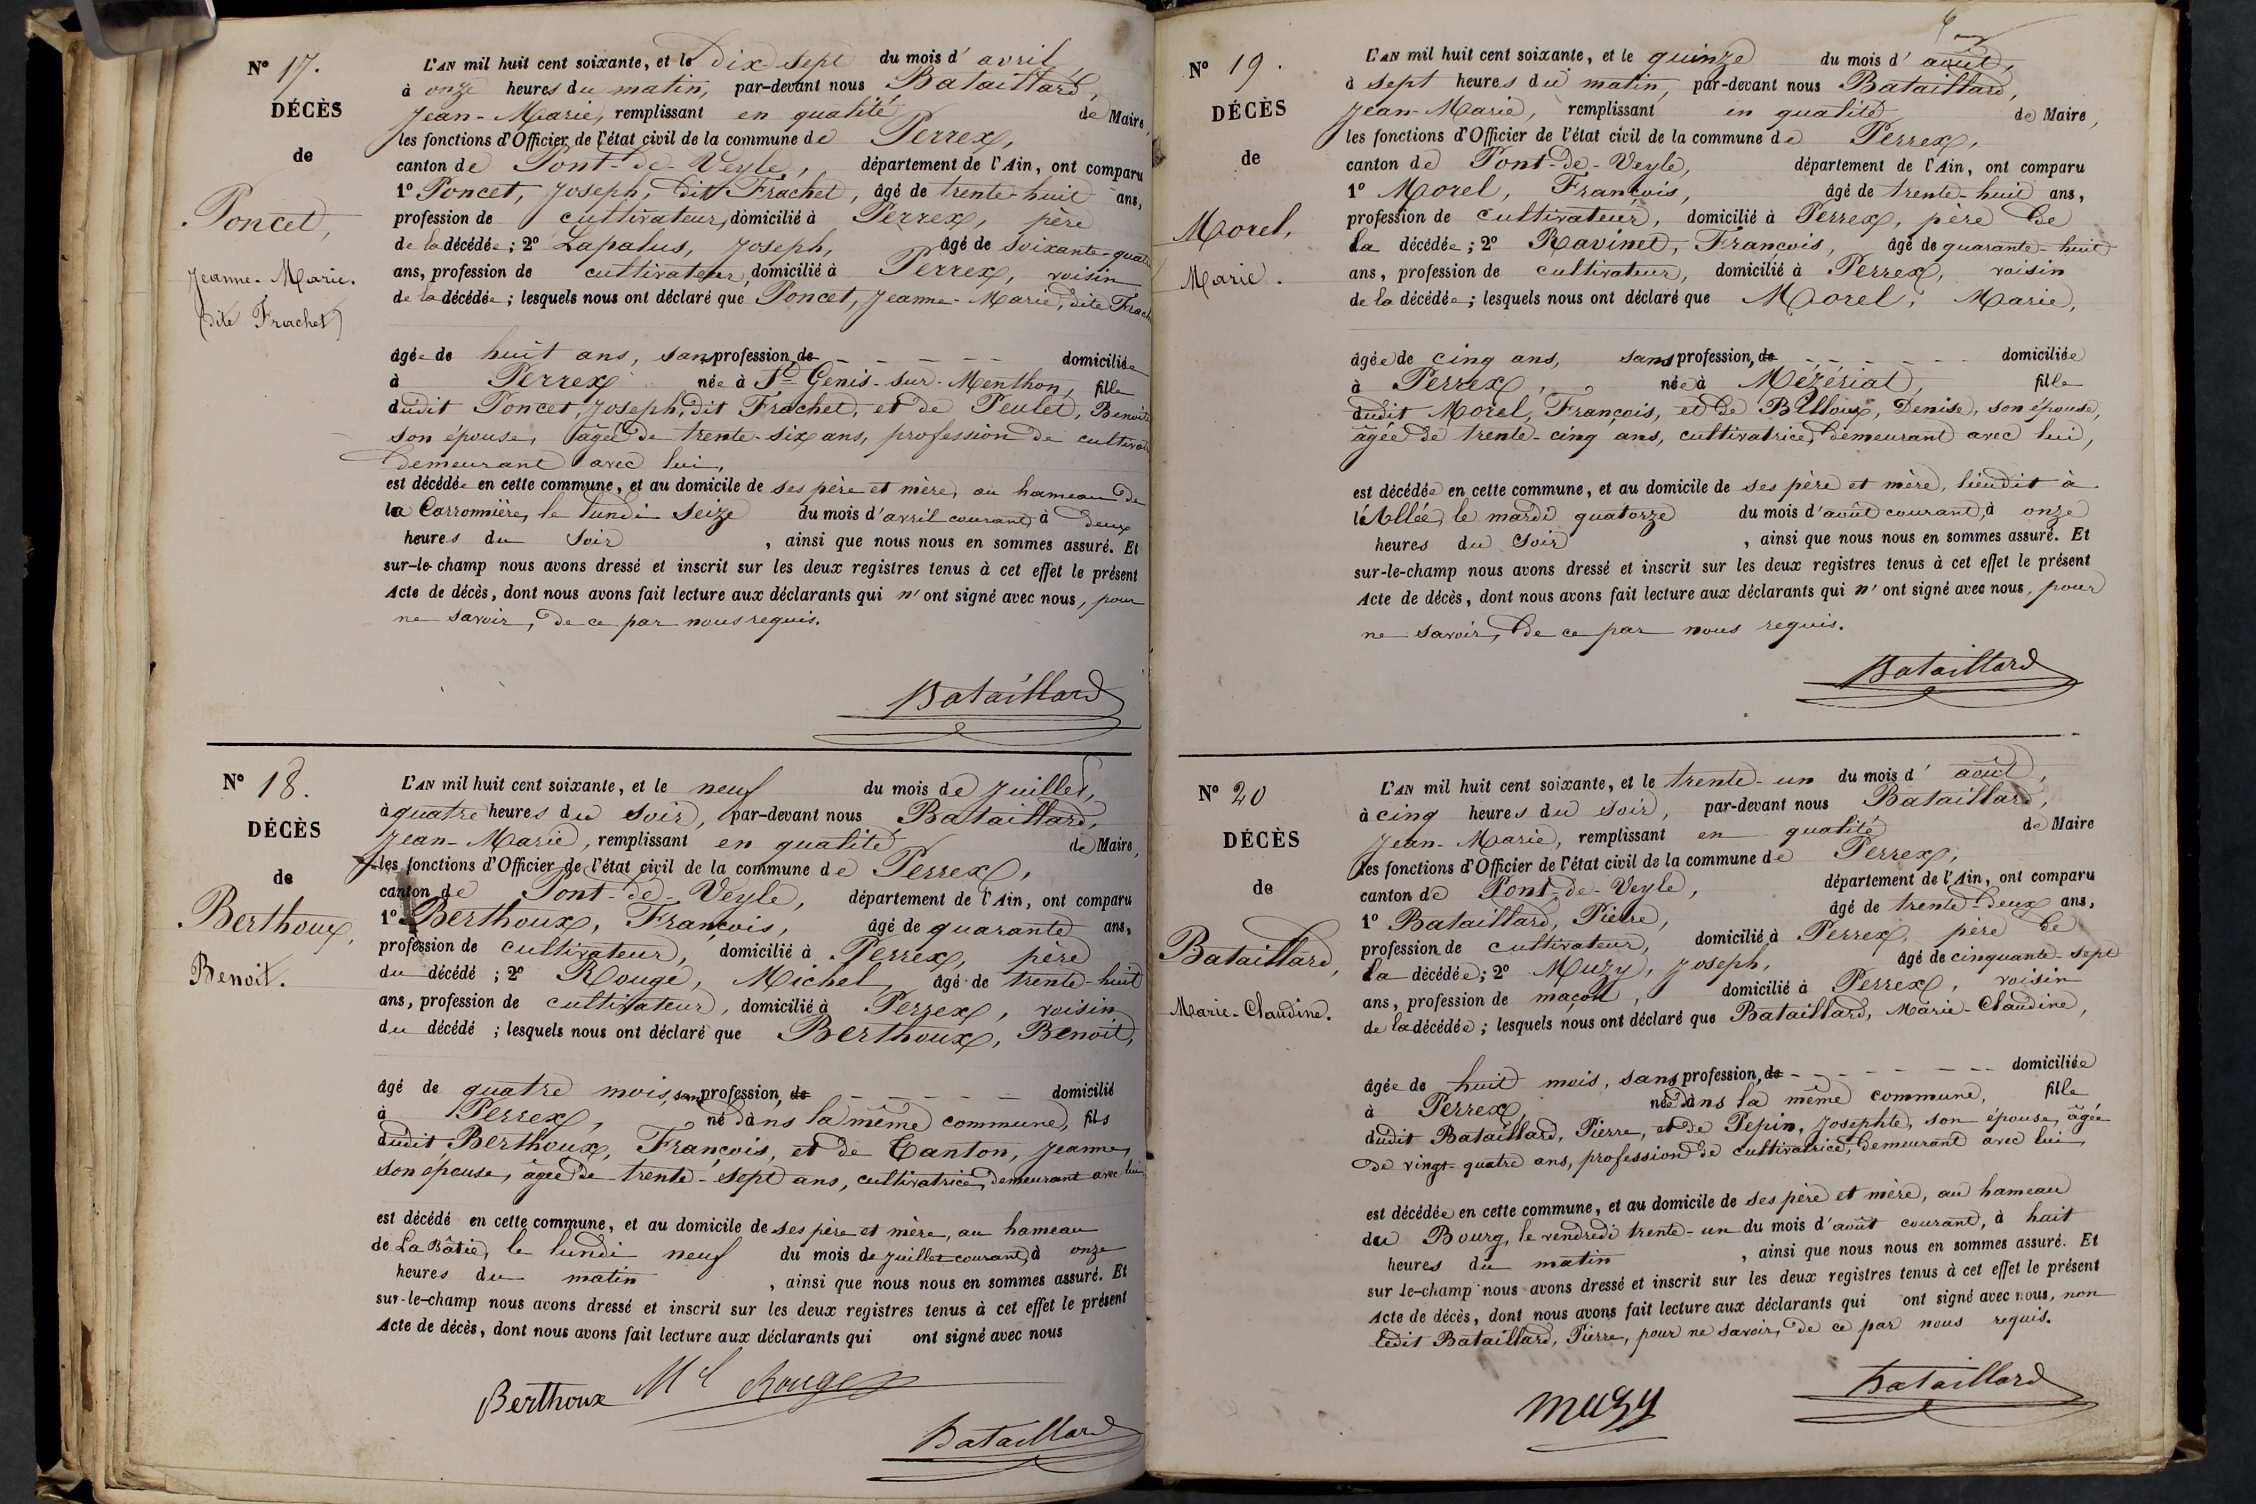 N° 17.
DÉCÈS
de
Poncet,
Jeanne-Marie.
(dite Frachet)
L'AN mil huit cent soixante, et le Dix-sept du mois d'avril,
à onze heures du matin, par-devant nous Bataillard,
Jean-Marie, remplissant en qualité de Maire,
les fonctions d'Officier de l'état civil de la commune de Perrex,
canton de Pont-de-Veyle, département de l'Ain, ont comparu
1° Poncet, Joseph, dit Frachet, âgé de trente-huit ans,
profession de cultivateur, domicilié à Perrex, père
de la décédée ; 2° Lapalus, Joseph, âgé de soixante-quatre
ans, profession de cultivateur, domicilié à Perrex, voisin
de la décédée ; lesquels nous ont déclaré que Poncet, Jeanne-Marie, dite Frach
âgée de huit ans, sans profession, de domiciliée
à Perrex née à St Genis-sur-Menthon, fille
dudit Poncet, Joseph, dit Frachet, et de Peulet, Benoite
son épouse, âgée de trente-six ans, profession de cultivat
demeurant avec lui,
est décédée en cette commune, et au domicile de ses père et mère, au hameau de
la Carronnière, le lundi seize du mois d'avril courant, à deux
heures du soir , ainsi que nous nous en sommes assuré. Et
sur-le-champ nous avons dressé et inscrit sur les deux registres tenus à cet effet le présent
Acte de décès, dont nous avons fait lecture aux déclarants qui n'ont signé avec nous, pour
ne savoir, de ce par nous requis.
Bataillard
N° 18.
DÉCÈS
de
Berthoux,
Benoit.
L'AN mil huit cent soixante, et le neuf du mois de Juillet,
à quatre heures du soir, par-devant nous Bataillard,
Jean-Marie, remplissant en qualité de Maire,
les fonctions d'Officier de l'état civil de la commune de Perrex,
canton de Pont-de-Veyle, département de l'Ain, ont comparu
1° Berthoux, François, âgé de quarante ans,
profession de cultivateur, domicilié à Perrex, père
du décédé ; 2° Rouge, Michel, âgé de trente-huit
ans, profession de cultivateur, domicilié à Perrex, voisin
du décédé ; lesquels nous ont déclaré que Berthoux, Benoit,
âgé de quatre mois, sans profession, de domicilié
à Perrex, né dans la même commune, fils
dudit Berthoux, François, et de Canton, Jeanne,
son épouse, âgée de trente-sept ans, cultivatrice, demeurant avec lui
est décédé en cette commune, et au domicile de ses père et mère, au hameau
de La Bâtie, le lundi neuf du mois de Juillet courant, à onze
heures du matin , ainsi que nous nous en sommes assuré. Et
sur-le-champ nous avons dressé et inscrit sur les deux registres tenus à cet effet le présent
Acte de décès, dont nous avons fait lecture aux déclarants qui ont signé avec nous
Berthoux Mel Rouge
Bataillard
N° 19.
DÉCÈS
de
Morel,
Marie.
L'AN mil huit cent soixante, et le quinze du mois d'août,
à sept heures du matin, par-devant nous Bataillard,
Jean-Marie, remplissant en qualité de Maire,
les fonctions d'Officier de l'état civil de la commune de Perrex,
canton de Pont-de-Veyle, département de l'Ain, ont comparu
1° Morel, François, âgé de trente-huit ans,
profession de cultivateur, domicilié à Perrex, père de
la décédée ; 2° Ravinet, François, âgé de quarante-huit
ans, profession de cultivateur, domicilié à Perrex, voisin
de la décédée ; lesquels nous ont déclaré que Morel, Marie,
âgée de cinq ans, sans profession, de domiciliée
à Perrex, née à Mézériat, fille
dudit Morel, François, et de Billoux, Denise, son épouse,
âgée de trente-cinq ans, cultivatrice, demeurant avec lui,
est décédée en cette commune, et au domicile de ses père et mère, lieudit à
l'Allée, le mardi quatorze du mois d'août courant, à onze
heures du soir , ainsi que nous nous en sommes assuré. Et
sur-le-champ nous avons dressé et inscrit sur les deux registres tenus à cet effet le présent
Acte de décès, dont nous avons fait lecture aux déclarants qui n'ont signé avec nous, pour
ne savoir, de ce par nous requis.
Bataillard
N° 20
DÉCÈS
de
Bataillard,
Marie-Claudine.
L'AN mil huit cent soixante, et le trente-un du mois d'août,
à cinq heures du soir, par-devant nous Bataillard,
Jean-Marie, remplissant en qualité de Maire
les fonctions d'Officier de l'état civil de la commune de Perrex,
canton de Pont-de-Veyle, département de l'Ain, ont comparu
1° Bataillard, Pierre, âgé de trente-deux ans,
profession de cultivateur, domicilié à Perrex, père de
la décédée ; 2° Muzy, Joseph, âgé de cinquante-sept
ans, profession de maçon, domicilié à Perrex, voisin
de la décédée ; lesquels nous ont déclaré que Bataillard, Marie-Claudine,
âgée de huit mois, sans profession, de domiciliée
à Perrex, née dans la même commune, fille
dudit Bataillard, Pierre, et de Pepin, Josephte, son épouse, âgée
de vingt-quatre ans, profession de cultivatrice, demeurant avec lui
est décédée en cette commune, et au domicile de ses père et mère, au hameau
du Bourg, le vendredi trente-un du mois d'août courant, à huit
heures du matin , ainsi que nous nous en sommes assuré. Et
sur-le-champ nous avons dressé et inscrit sur les deux registres tenus à cet effet le présent
Acte de décès, dont nous avons fait lecture aux déclarants qui ont signé avec nous, non
ledit Bataillard, Pierre, pour ne savoir, de ce par nous requis.
muzy
Bataillard